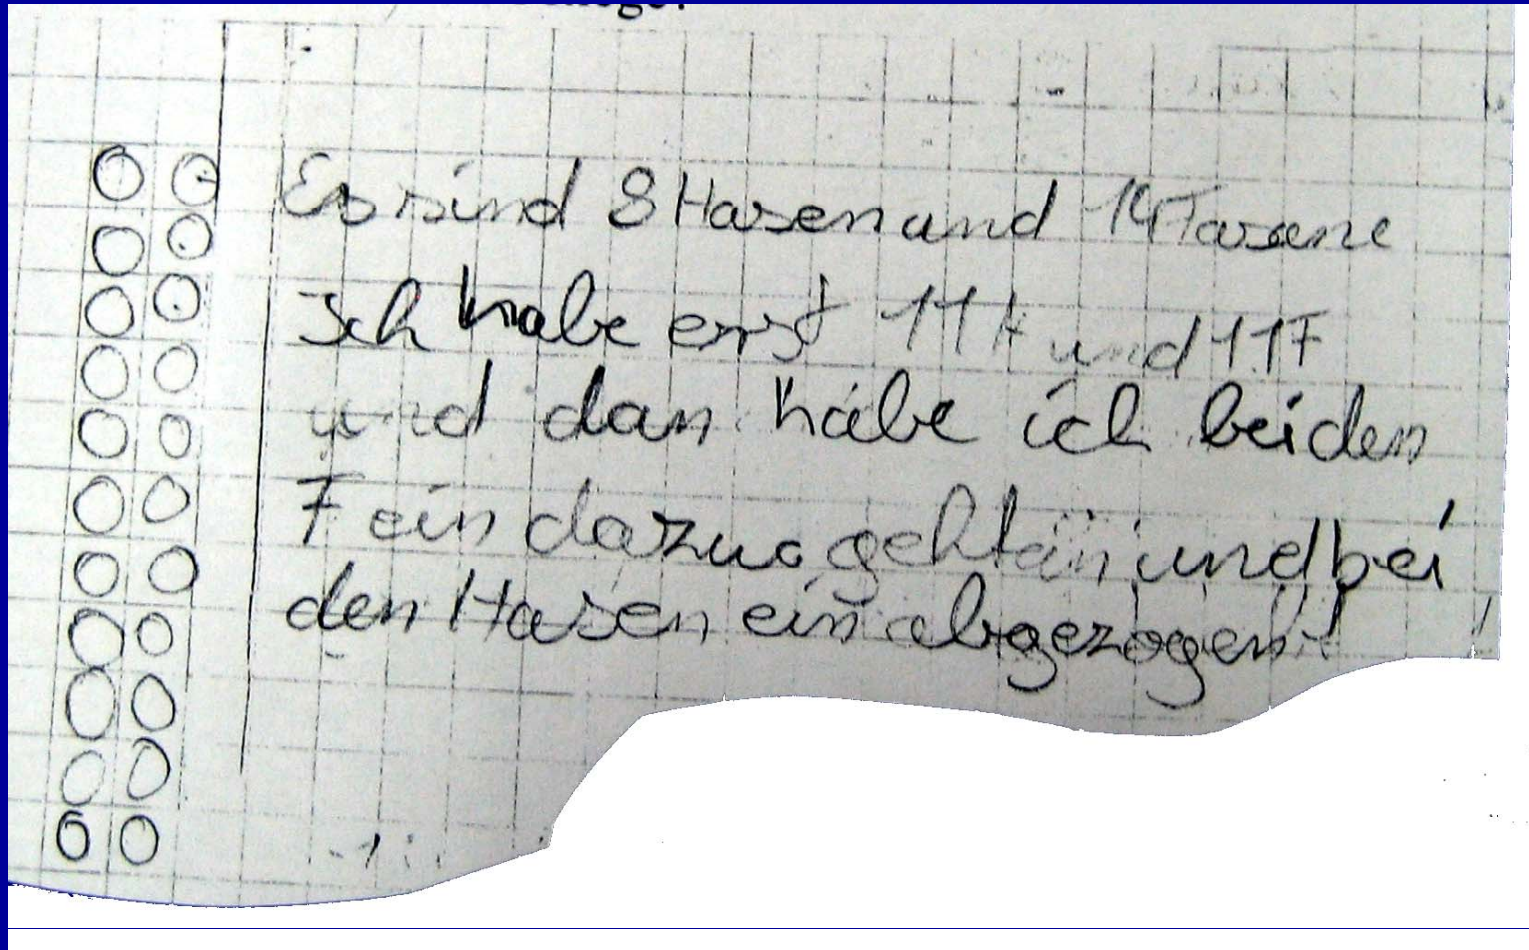 Es sind 8 Hasen und 14 Fasane
Ich habe erst 11 H und 11 F
und dan habe ich beiden
F ein dazu und bei
den Hasen ein abgezogen!